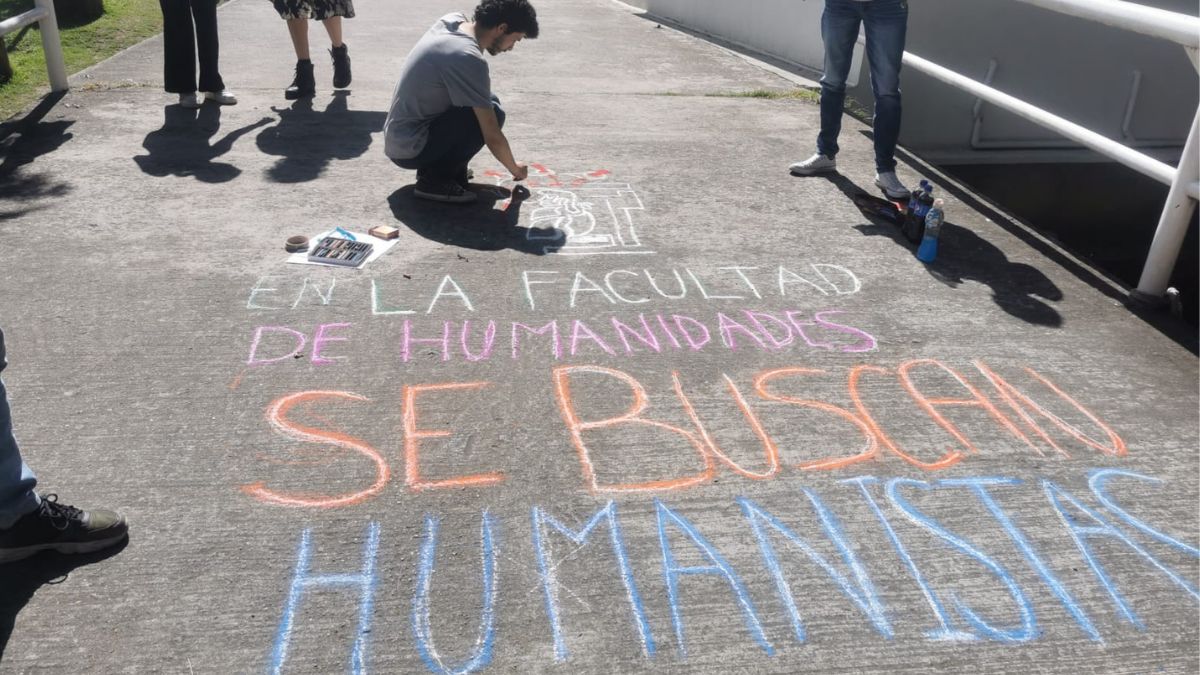 EN LA FACULTAD
DE HUMANIDADES
SE BUSCAN
HUMANISTAS